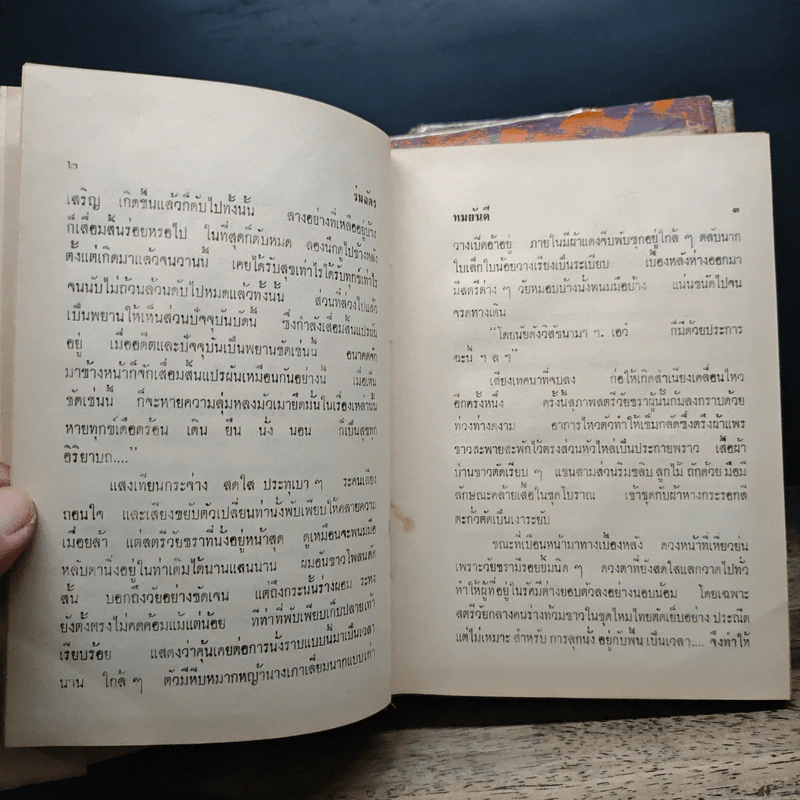 ๒
ร่มฉัตร
เสริญ เกิดขึ้นแล้วก็ดับไปทั้งนั้น ลางอย่างที่เหลืออยู่บ้าง
ก็เสื่อมสิ้นร่อยหรอไป ในที่สุดก็ดับหมด ลองนึกดูไปข้างหลัง
ตั้งแต่เกิดมาแล้วจนวานนี้ เคยได้รับสุขเท่าไรได้รับทุกข์เท่าไร
จนนับไม่ถ้วนล้วนดับไปหมดแล้วทั้งนั้น ส่วนที่ล่วงไปแล้ว
เป็นพยานให้เห็นส่วนปัจจุบันบัดนี้ ซึ่งกำลังเสื่อมสิ้นแปรผัน
อยู่ เมื่ออดีตและปัจจุบันเป็นพยานชัดเช่นนี้ อนาคตจัก
มาข้างหน้าก็จักเสื่อมสิ้นแปรผันเหมือนกันอย่างนี้ เมื่อเห็น
ชัดเช่นนี้ ก็จะหายความลุ่มหลงมัวเมายึดมั่นในเรื่องเหล่านั้น
หายทุกข์เดือดร้อน เดิน ยืน นั่ง นอน ก็เป็นสุขทุก
อิริยาบถ...."
แสงเทียนกระจ่าง สดใส ประทุเบา ๆ ระคนเสียง
ถอนใจ และเสียงขยับตัวเปลี่ยนท่านั่งพับเพียบให้คลายความ
เมื่อยล้า แต่สตรีวัยชราที่นั่งอยู่หน้าสุด ดูเหมือนจะพนมมือ
หลับตานิ่งอยู่ในท่าเดิมได้นานแสนนาน ผมอันขาวโพลนตัด
สั้น บอกถึงวัยอย่างชัดเจน แต่ถึงกระนั้นร่างผอม ระหง
ยังตั้งตรงไม่คดค้อมแม้แต่น้อย ทีท่าที่พับเพียบเก็บปลายเท้า
เรียบร้อย แสดงว่าคุ้นเคยต่อการนั่งราบแบบนี้มาเป็นเวลา
นาน ใกล้ ๆ ตัวมีหีบหมากหญ้านางเภาเลี่ยมนากแบบเก่า
ทมยันตี
๓
วางเปิดอ้าอยู่ ภายในมีผ้าแดงจีบพับซุกอยู่ใกล้ ๆ ตลับนาก
ใบเล็กใบน้อยวางเรียงเป็นระเบียบ เบื้องหลังห่างออกมา
มีสตรีต่าง ๆ วัยหมอบบ้างนั่งพนมมือบ้าง แน่นขนัดไปจน
จรดทางเดิน
"โดยนัยดังวิสัชนามา ฯ. เอวํ ก็มีด้วยประการ
ฉะนี้ ฯ ล ฯ"
เสียงเทศนาที่จบลง ก่อให้เกิดสำเนียงเคลื่อนไหว
อีกครั้งหนึ่ง ครั้งนี้สุภาพสตรีวัยชราผู้นั้นก้มลงกราบด้วย
ท่วงท่างดงาม อาการไหวตัวทำให้เข็มกลัดซึ่งตรึงผ้าแพร
ขาวสะพายสะพักไว้ตรงส่วนหัวไหล่เป็นประกายพราว เสื้อผ้า
ป่านขาวตัดเรียบ ๆ แขนสามส่วนริมขลิบ ลูกไม้ ถักด้วย มือมี
ลักษณะคล้ายเสื้อในชุดโบราณ เข้าชุดกับผ้าหางกระรอกสี
ตะกั่วตัดเป็นเงาระยับ
ขณะที่เบือนหน้ามาทางเบื้องหลัง ดวงหน้าที่เหี่ยวย่น
เพราะวัยชรามีรอยยิ้มนิด ๆ ดวงตาที่ยังสดใสแลกวาดไปทั่ว
ทำให้ผู้ที่อยู่ในรัศมีต่างยอบตัวลงอย่างนอบน้อม โดยเฉพาะ
สตรีวัยกลางคนร่างท้วมขาวในชุดไหมไทยตัดเย็บอย่าง ประณีต
แต่ไม่เหมาะ สำหรับ การลุกนั่ง อยู่กับพื้น เป็นเวลา.... จึงทำให้